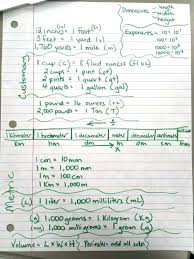 Dimensions
length
width
height
(in)
(ft)
12 inches = 1 foot
3 feet = 1 yard
1,760 yards = 1 mile (m)
Exponents =
1 cup (c) = 8 fluid ounces (fl oz)
2 cups = 1 pint (pt)
2 pints = 1 quart (qt)
4 quarts = 1 gallon (gal)
Customary
1 pound = 16 ounces
2,000 pounds = 1 Ton (T)
1 Kilometer
1 hectometer
1 decameter
meter
Km
hm
dm
m
cm
Metric
1 cm = 10 mm
1 m = 100 cm
1 m = 1,000 mm
1 Km = 1,000 m
(L) 1 liter = 1,000 milliliters (mL)
1,000 grams = 1 Kilogram (Kg)
1,000 milligrams = 1 gram (g)
Volume = L x W x H
Perimeter = add all sides